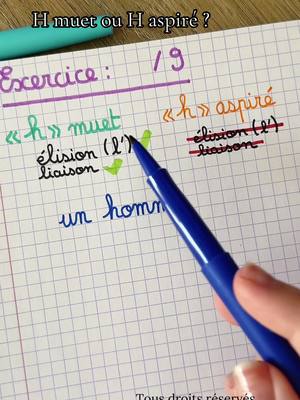 H muet ou H aspiré ?
Exercice : /9
« h » muet
« h » aspiré
élision (l')
liaison
élision (l')
liaison
un homm
Tous droits réservés